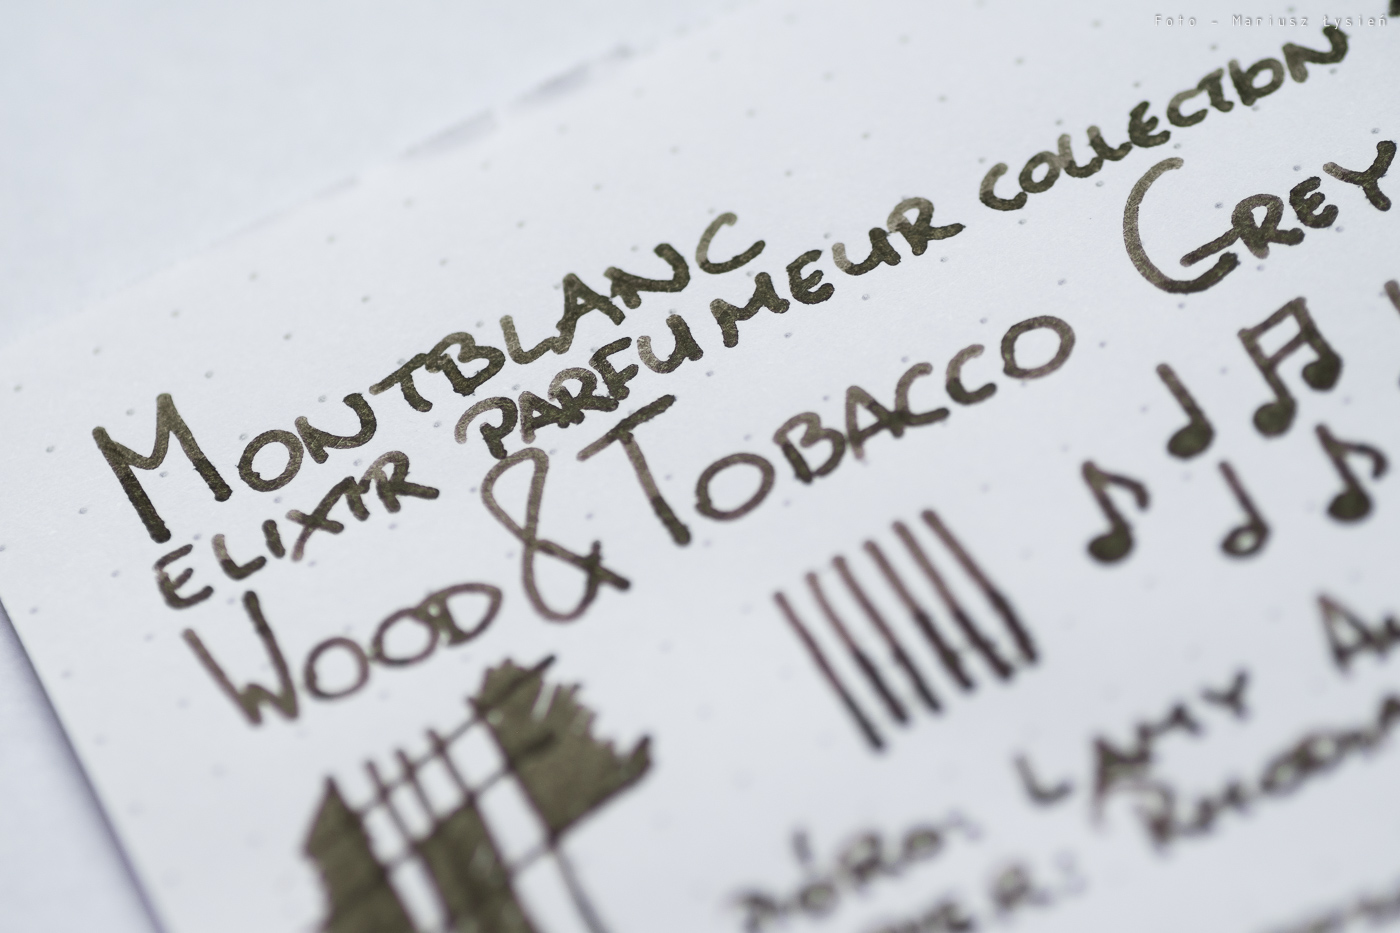 Foto - Mariusz Łysień
MONTBLANC
ELIXIR PARFUMEUR COLLECTION
WOOD & TOBACCO GREY
PIÓRO: LAMY
RHODIA